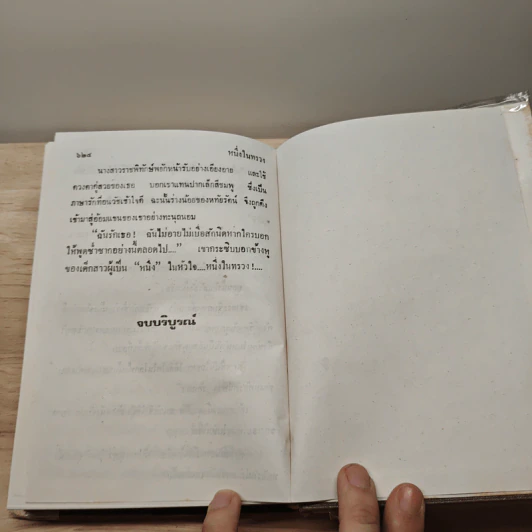 ๖๒๘ หนึ่งในทรวง
นางสาวราชพิทักษ์พยักหน้ารับอย่างเอียงอาย และใช้
ดวงตาคู่สวยของเธอ บอกเขาแทนปากเล็กสีชมพู ซึ่งเป็น
ภาษารักที่อนวัชเข้าใจดี ฉะนั้นร่างน้อยของหทัยรัตน์ จึงถูกดึง
เข้ามาสู่อ้อมแขนของเขาอย่างทะนุถนอม
“ฉันรักเธอ! ฉันไม่อายไม่เบื่อสักนิดหากใครบอก
ให้พูดซ้ำซากอย่างนี้ตลอดไป....” เขากระซิบบอกข้างหู
ของเด็กสาวผู้เป็น “หนึ่ง” ในหัวใจ....หนึ่งในทรวง!....
จบบริบูรณ์